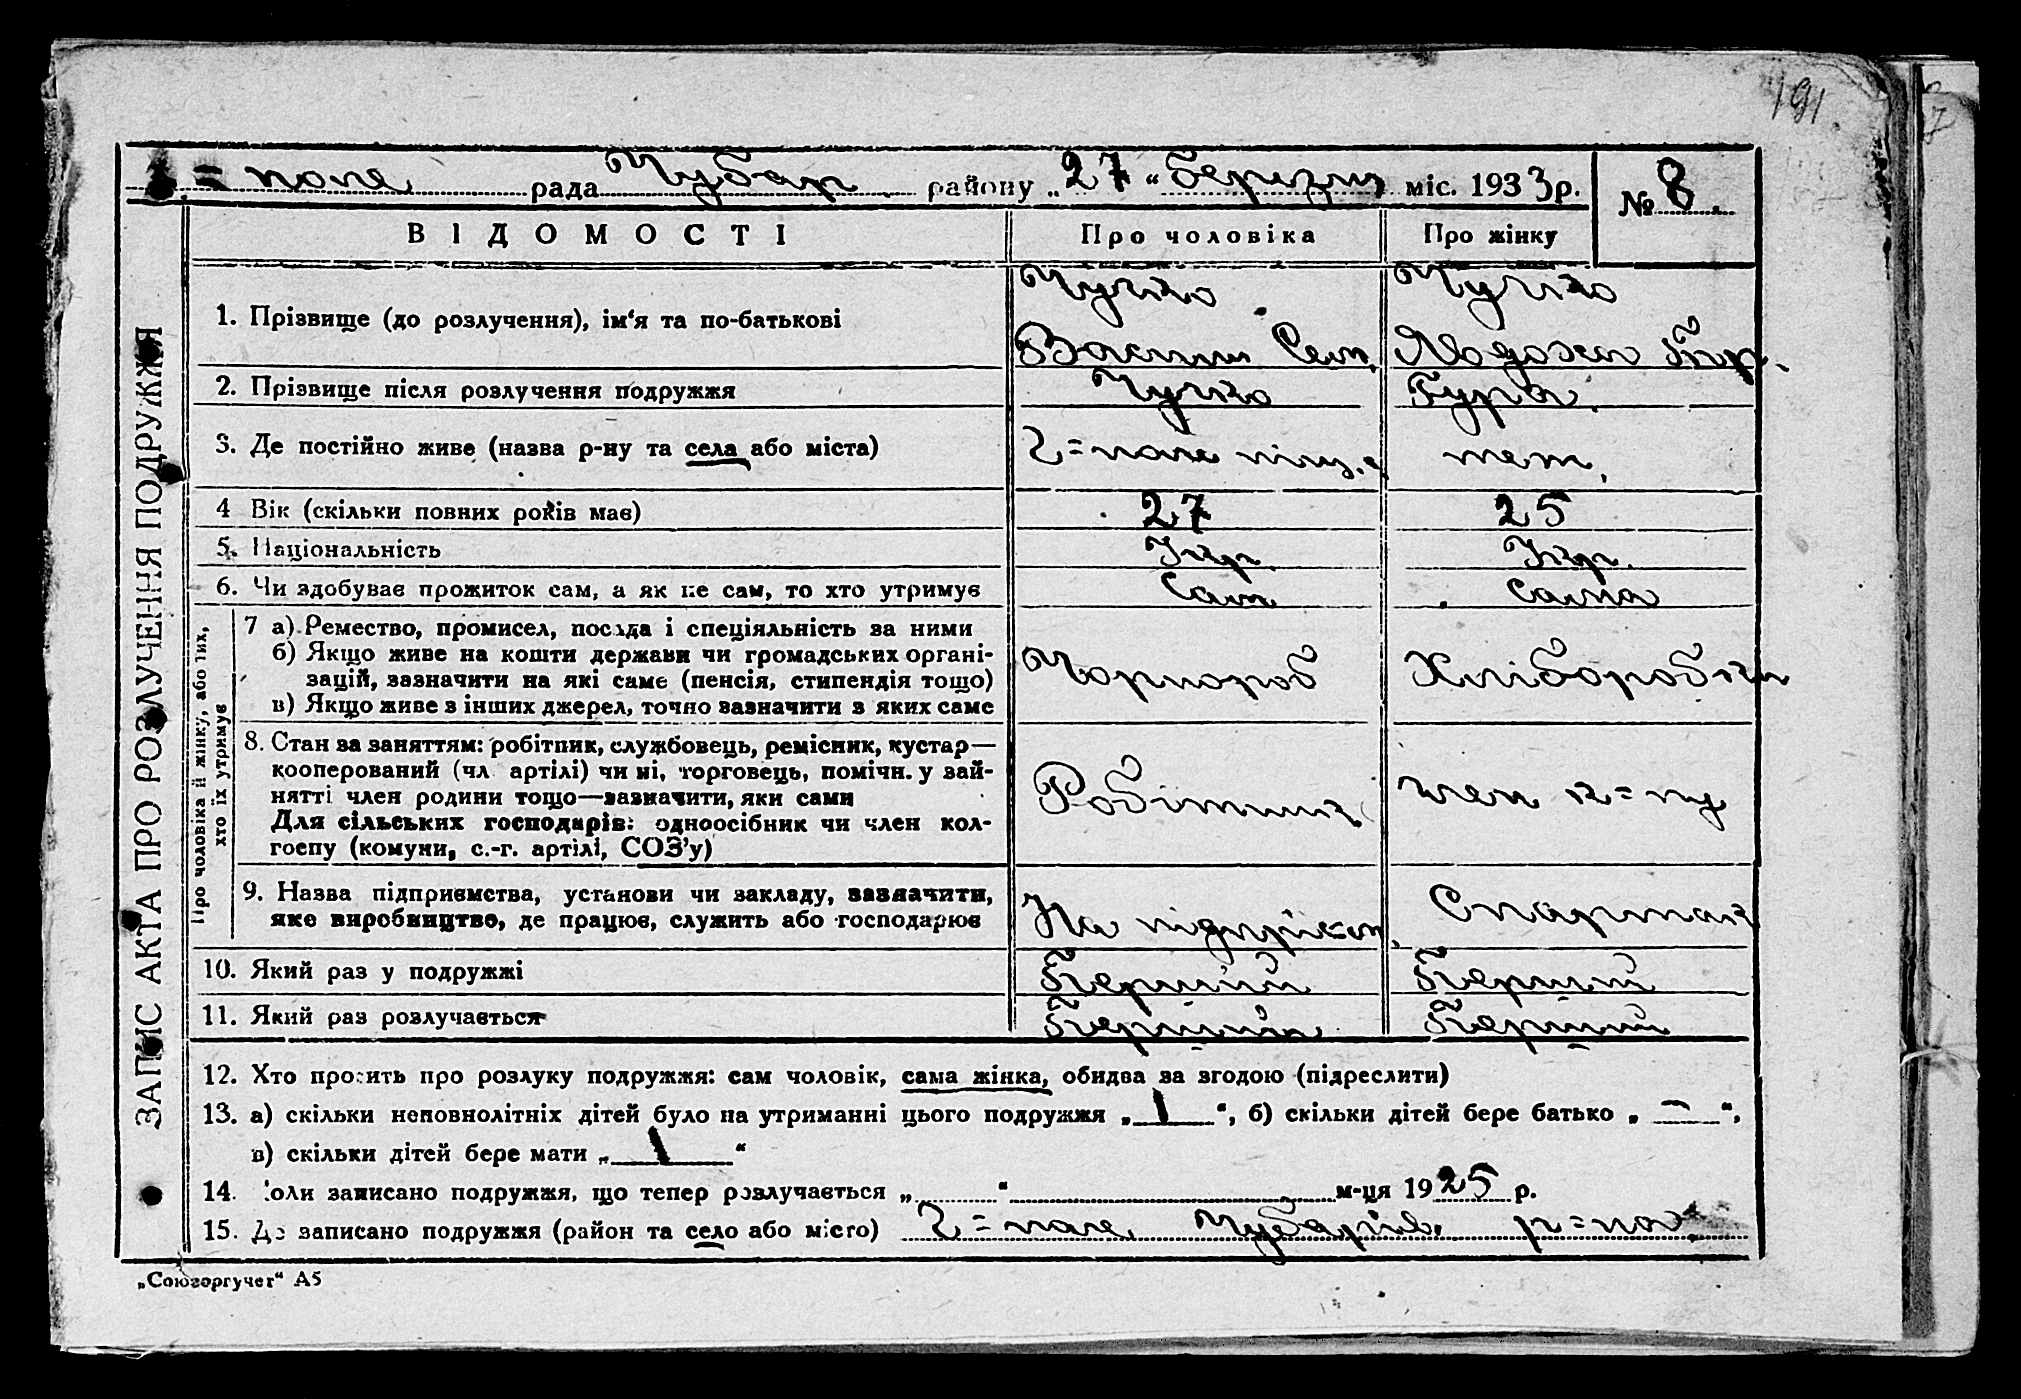 191
Г=поле рада Чубар району „27“ березня міс. 1933р. № 8.
ВІДОМОСТІ Про чоловіка Про жінку
Чучко Чучко
1. Прізвище (до розлучення), ім‘я та по-батькові
Василь Сем.
2. Прізвище після розлучення подружжя Чучко Гура.
3. Де постійно живе (назва р-ну та села або міста) Г=поле тем,
4 Вік (скільки повних років має) 27 25
5. Національність Укр. Укр.
6. Чи здобуває прожиток сам, а як не сам, то хто утримує Сам Сама
Про чоловіка й жінку, або тих, хто їх утримує
7 а) Ремество, промисел, посада і спеціяльність за ними
б) Якщо живе на кошти держави чи громадських органі-
зацій, зазначити на які саме (пенсія, стипендія тощо) Чорнороб Хліборобка
в) Якщо живе з інших джерел, точно зазначити з яких саме
8. Стан за заняттям: робітник, службовець, ремісник, кустар—
кооперований (чл артілі) чи ні, торговець, помічн. у зай-
нятті член родини тощо—зазначити, яки сами Робітник член к=пу
Для сільських господарів: одноосібник чи член кол-
госпу (комуни, с.-г. артілі, СОЗ’у)
9. Назва підприємства, установи чи закладу, зазначити, Спартак
яке виробництво, де працює, служить або господарює На підприєм.
10. Який раз у подружжі Перший Перший
11. Який раз розлучається Перший Перший
12. Хто просить про розлуку подружжя: сам чоловік, сама жінка, обидва за згодою (підреслити)
13. а) скільки неповнолітніх дітей було на утриманні цього подружжя „1“, б) скільки дітей бере батько „—“,
в) скільки дітей бере мати „1“
14. Коли записано подружжя, що тепер розлучається „ “ м-ця 1925 р.
15. Де записано подружжя (район та село або місто) Г=поле, Чубарів. р=ну
„Союзоргучет“ А5
ЗАПИС АКТА ПРО РОЗЛУЧЕННЯ ПОДРУЖЖЯ